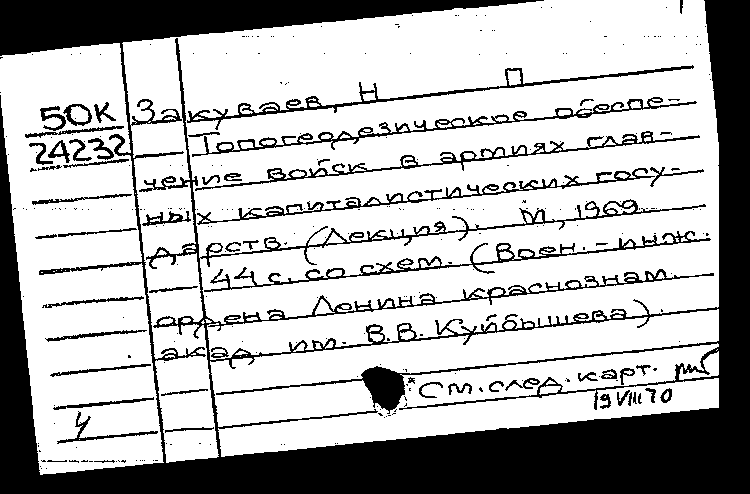 50К
24232
Закуваев, Н П
Топогеодезическое обеспе-
чение войск в армиях глав-
ных капиталистических госу-
дарств. (Лекция). М., 1969.
44 с. со схем. (Воен.-инж.
ордена Ленина краснознам.
акад. им. В.В. Куйбышева).
См. след. карт.
19 VIII 70
ч